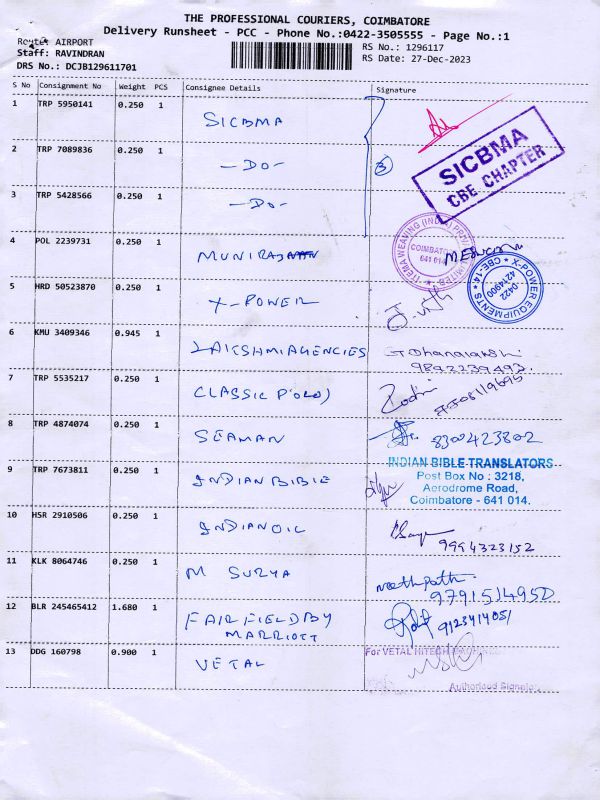 THE PROFESSIONAL COURIERS, COIMBATORE
Delivery Runsheet - PCC - Phone No.:0422-3505555 - Page No.:1
Route: AIRPORT
Staff: RAVINDRAN
DRS No.: DCJB129611701
RS No.: 1296117
RS Date: 27-Dec-2023
S No Consignment No Weight PCS Consignee Details Signature
1 TRP 5950141 0.250 1 SICBMA
SICBMA
CBE CHAPTER
2 TRP 7089836 0.250 1 -DO- 3
3 TRP 5428566 0.250 1 -DO-
4 POL 2239731 0.250 1
ITEMA WEAVING (INDIA)
COIMBATORE
641 014
5 HRD 50523870 0.250 1 X-POWER
X-POWER EQUIPMENTS
CBE-14
0422
4214900
6 KMU 3409346 0.945 1 LAKSHMI AGENCIES
7 TRP 5535217 0.250 1 CLASSIC POLO
8 TRP 4874074 0.250 1 SEAMAN 8300423802
9 TRP 7673811 0.250 1 INDIAN BIBLE
INDIAN BIBLE TRANSLATORS
Post Box No : 3218,
Aerodrome Road,
Coimbatore - 641 014.
10 HSR 2910506 0.250 1 INDIAN OIL
9994323152
11 KLK 8064746 0.250 1 M SURYA
9791514950
12 BLR 245465412 1.680 1 FAIRFIELD BY
MARRIOTT
9123414051
13 DDG 160798 0.900 1 VETAL
For VETAL HITECH
Authorised Signatory